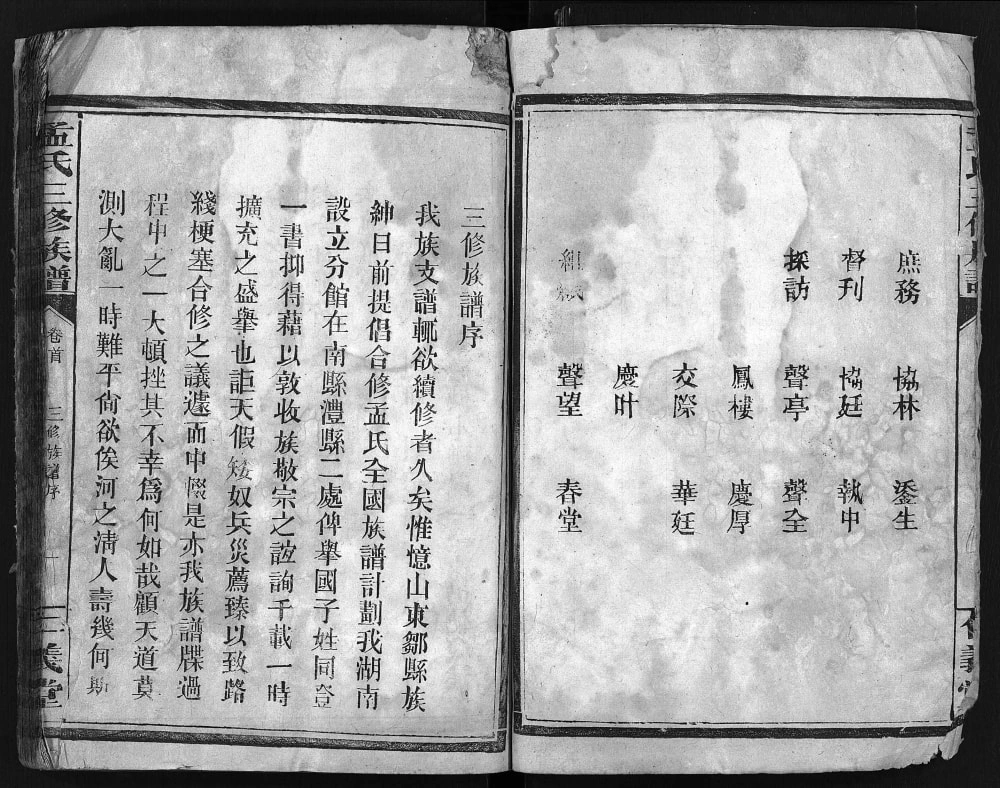 庶務 協林 鋈生
督刊 協廷 執中
採訪 聲亭 聲全
鳳樓 慶厚
交際 華廷
慶叶
聲望 春堂
三修族譜序
我族支譜輒欲續修者久矣惟憶山東鄒縣族
紳日前提倡合修孟氏全國族譜計劃我湖南
設立分館在南縣澧縣二處俾舉國子姓同登
一書抑得藉以敦收族敬宗之誼詢千載一時
擴充之盛舉也詎天假矮奴兵災薦臻以致路
綫梗塞合修之議遽而中輟是亦我族譜牒過
程中之一大頓挫其不幸爲何如哉顧天道莫
測大亂一時難平尙欲俟河之淸人壽幾何
孟氏三修族譜 卷首 三修族譜序 一 三義堂